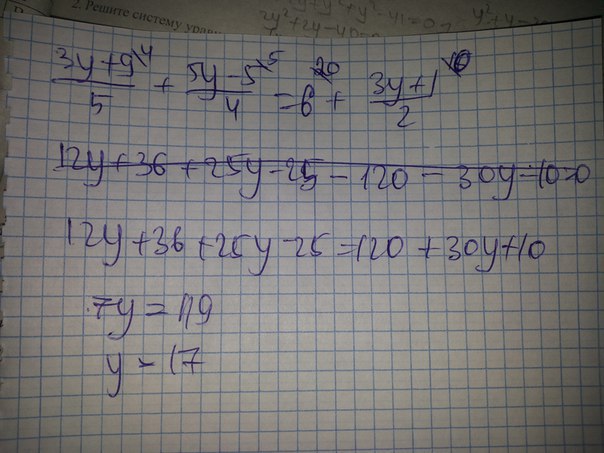 2. Решите систему
(3y+9)/5 \4 + (5y-5)/4 \5 = 6 \20 + (3y+1)/2 \10
12y+36+25y-25-120-30y-10=0
12y+36+25y-25=120+30y+10
7y=119
y=17